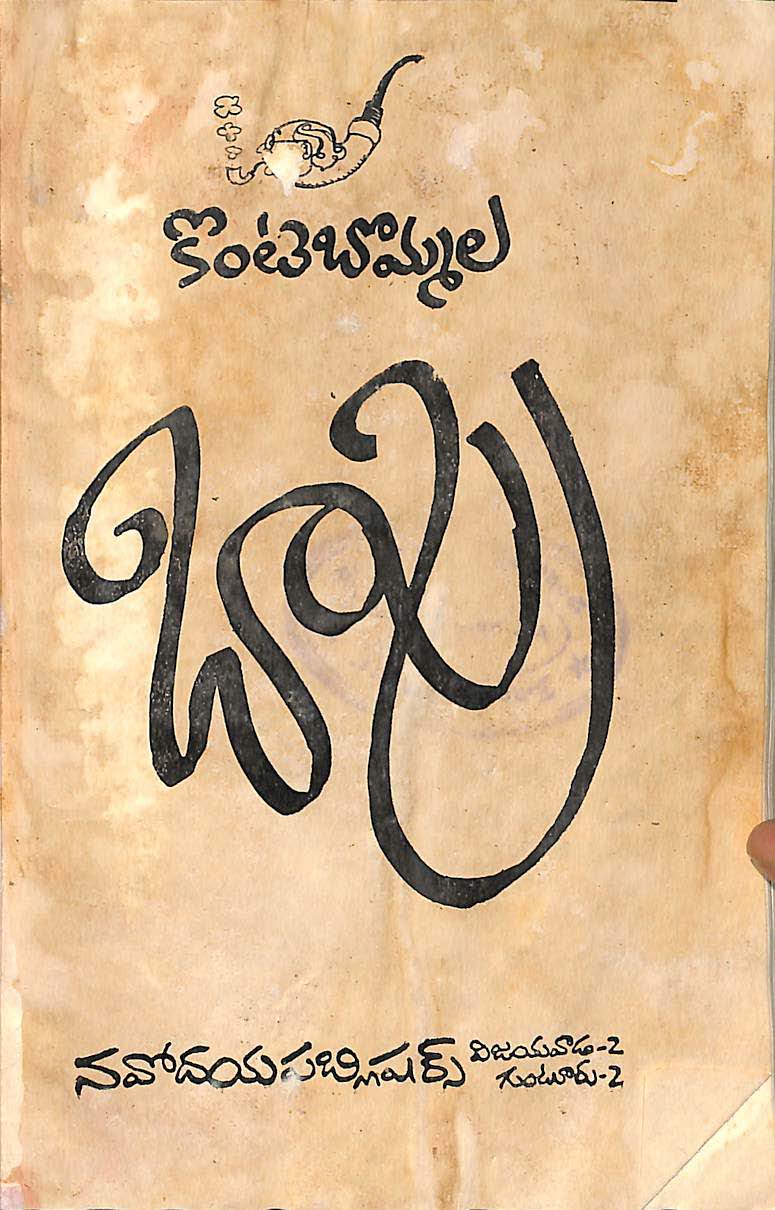 కొంటెబొమ్మల
బాపు
నవోదయ పబ్లిషర్స్ విజయవాడ-2
గుంటూరు-2